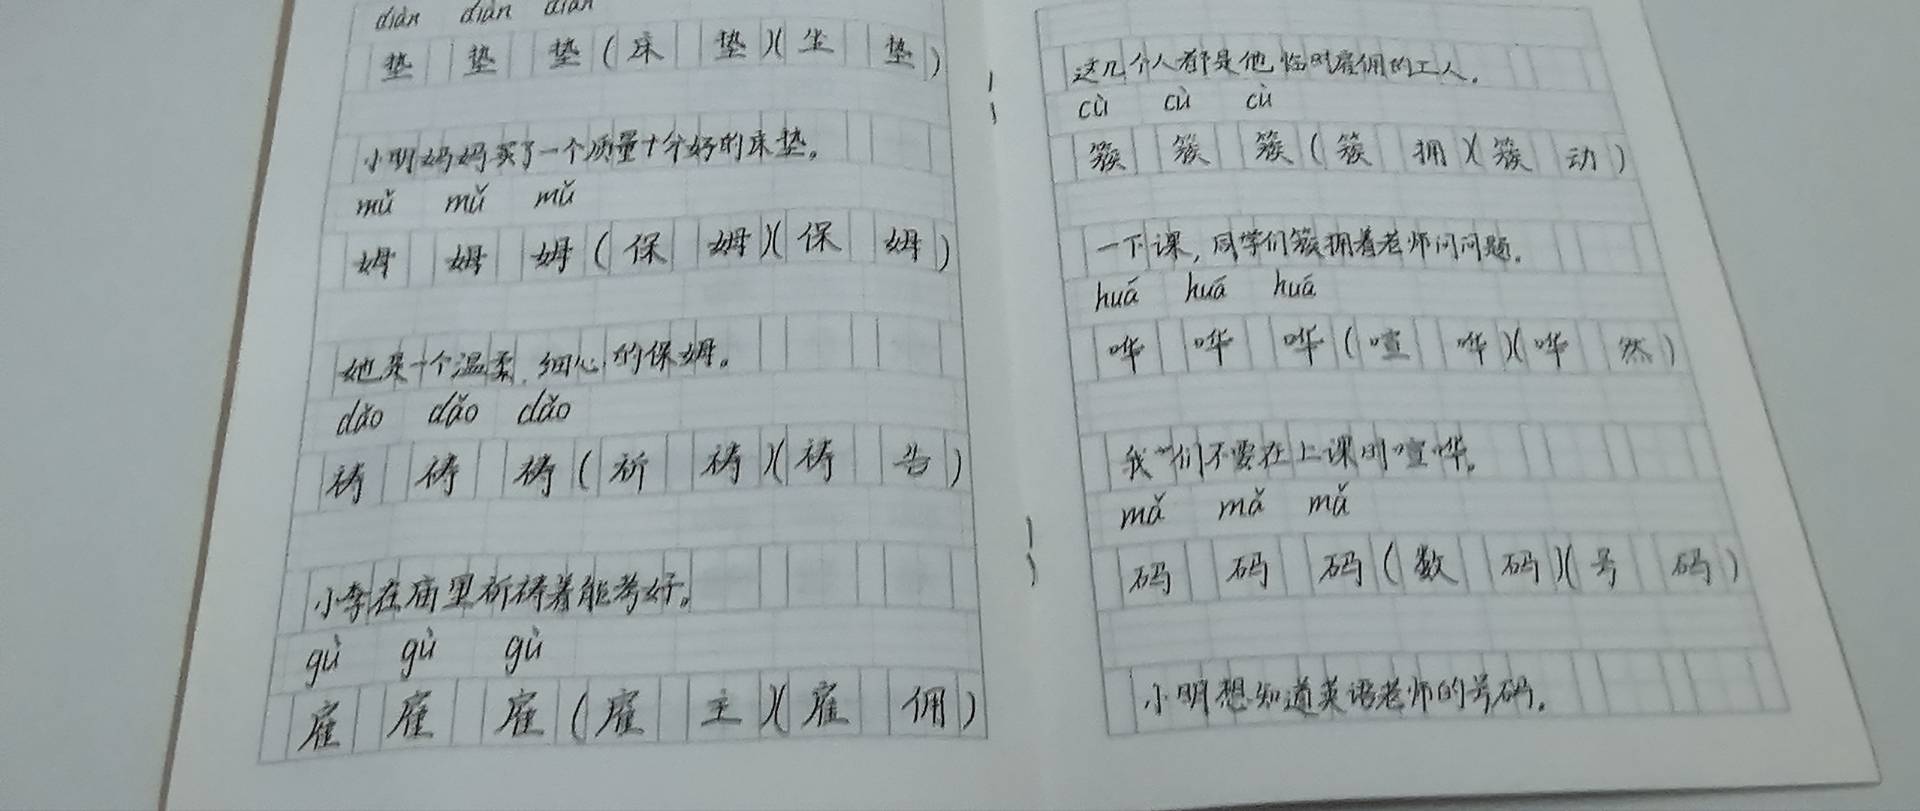 diàn diàn diàn
垫 垫 垫 (床 垫)(坐 垫)
小明妈妈买了一个质量十分好的床垫。
mǔ mǔ mǔ
姆 姆 姆 (保 姆)(保 姆)
她是一个温柔、细心的保姆。
dǎo dǎo dǎo
祷 祷 祷 (祈 祷)(祷 告)
小李在庙里祈祷着能考好。
gù gù gù
雇 雇 雇 (雇 主)(雇 佣)
这几个人都是他临时雇佣的工人。
cù cù cù
簇 簇 簇 (簇 拥)(簇 动)
一下课，同学们簇拥着老师问问题。
huá huá huá
哗 哗 哗 (喧 哗)(哗 然)
我们不要在上课时喧哗。
mǎ mǎ mǎ
码 码 码 (数 码)(号 码)
小明想知道英语老师的号码。